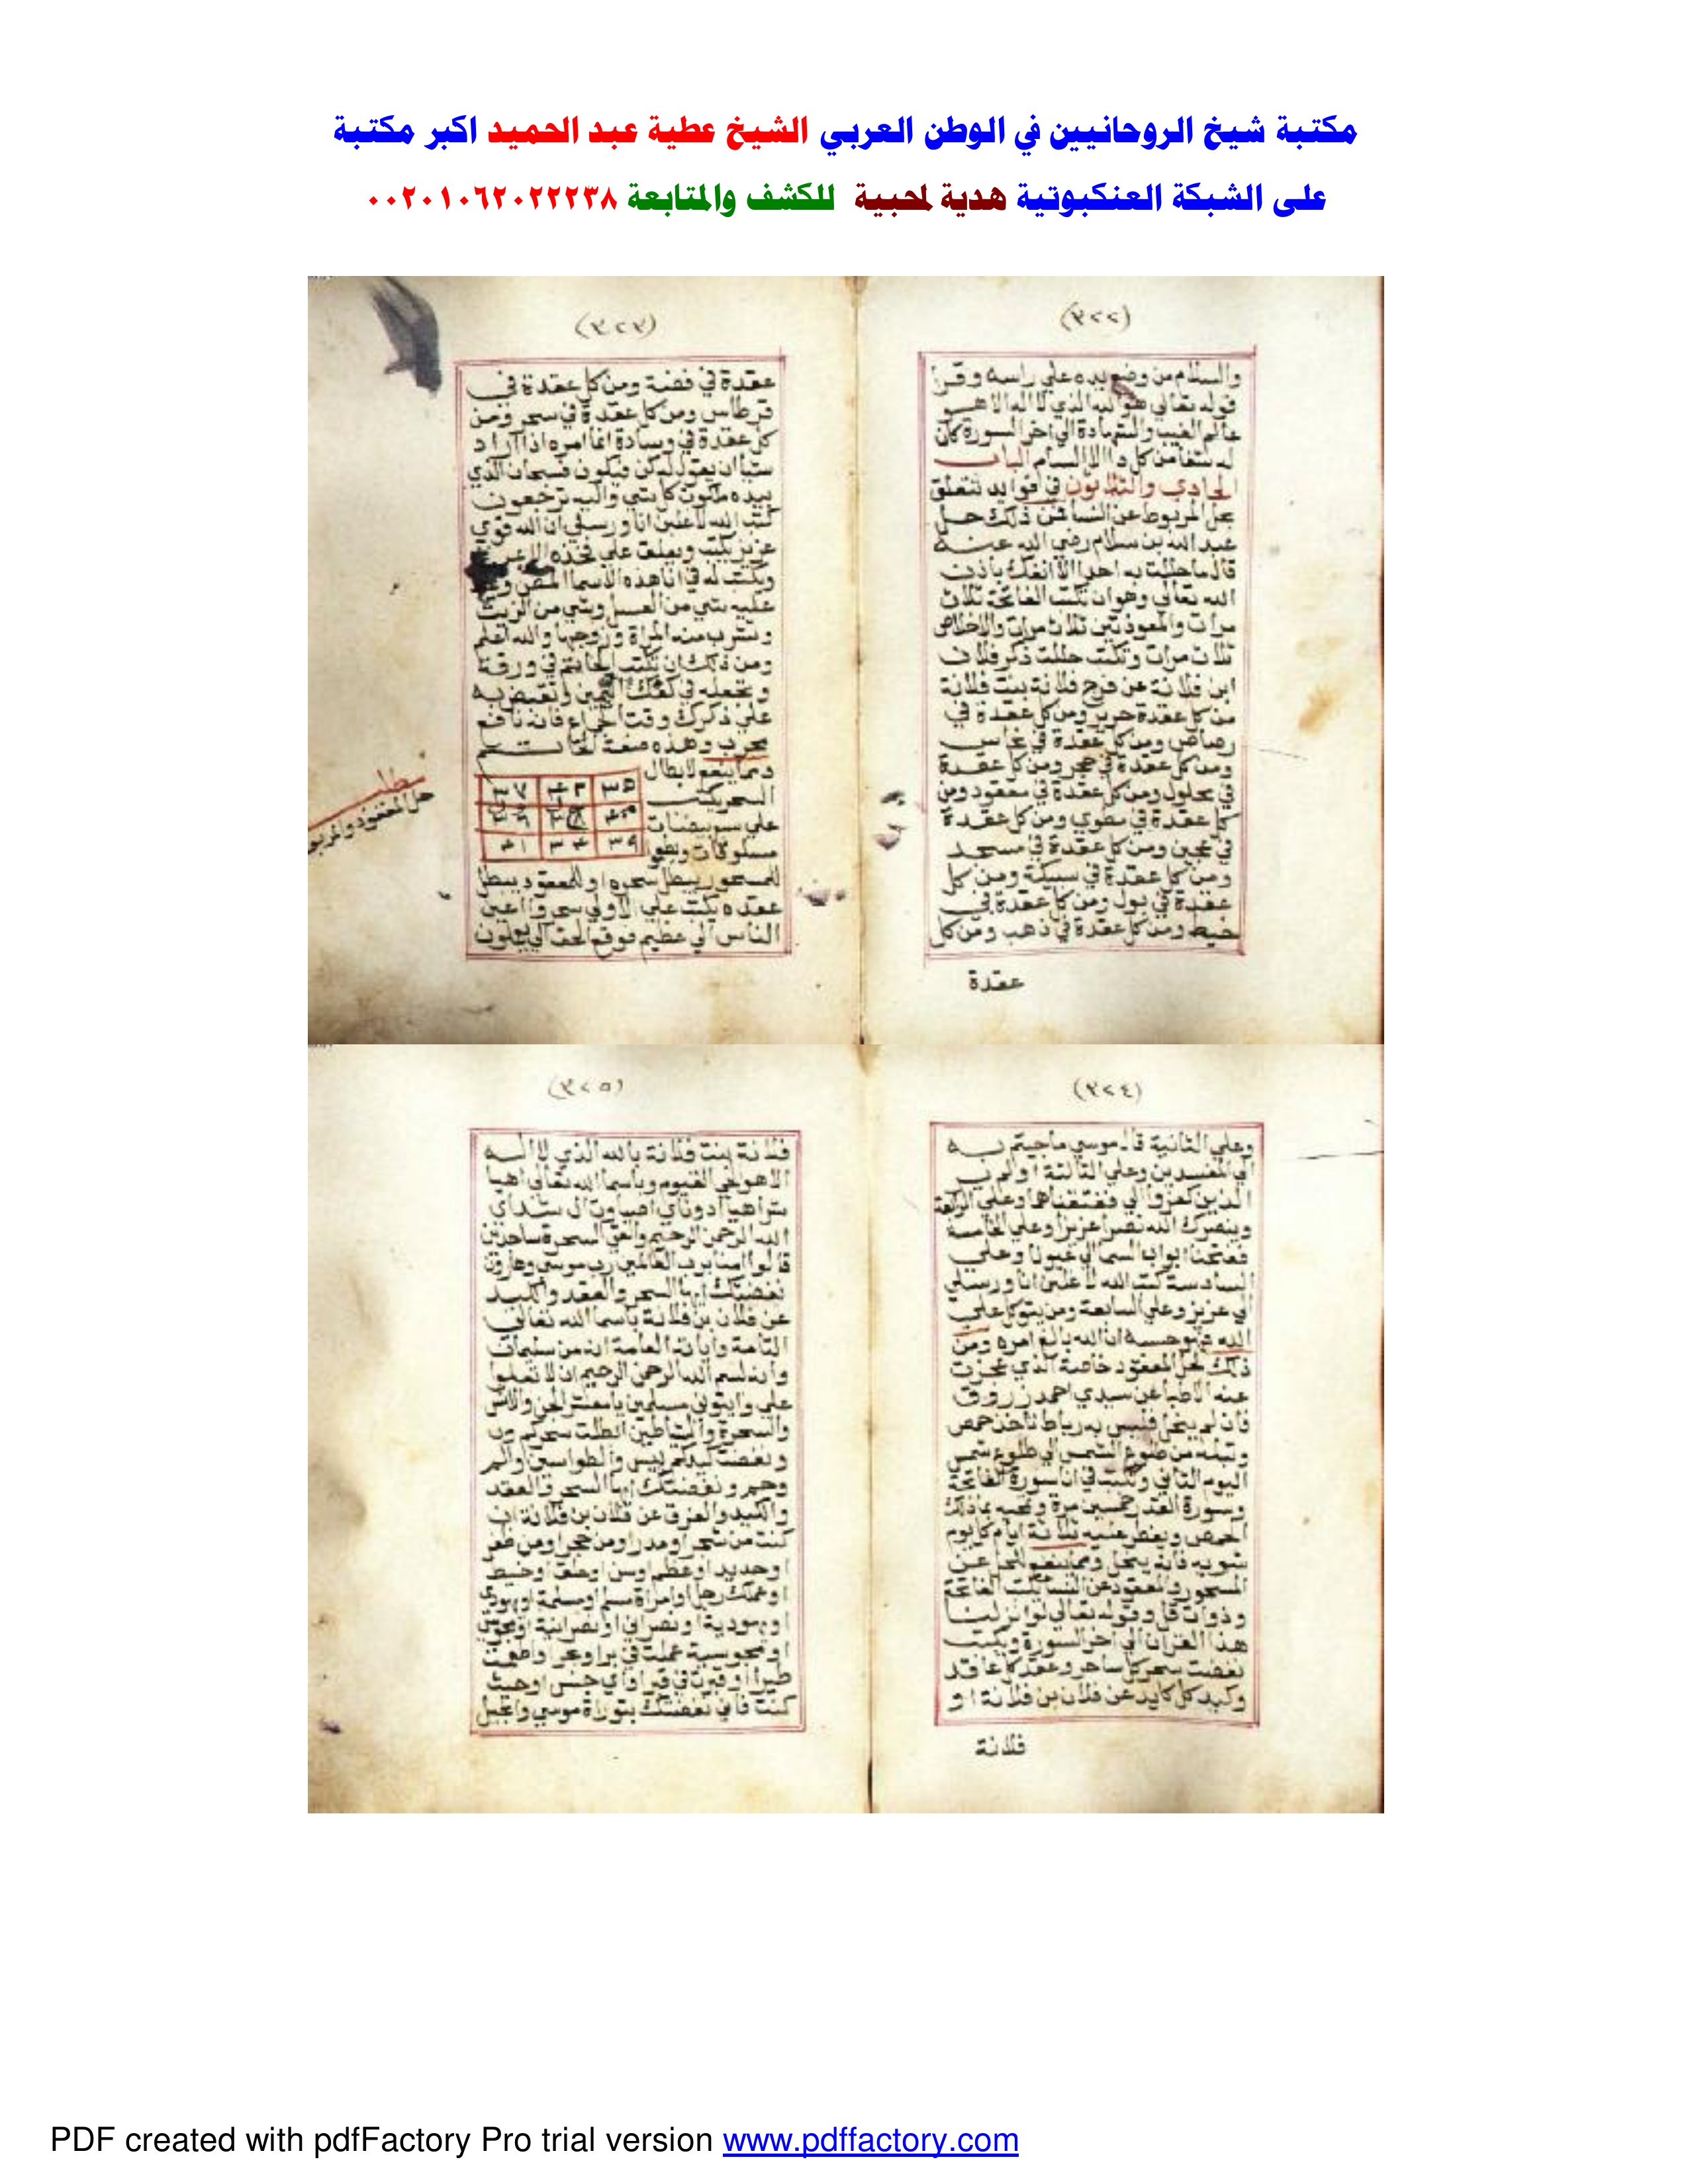 مكتبة شيخ الروحانيين في الوطن العربي الشيخ عطية عبد الحميد اكبر مكتبة
على الشبكة العنكبوتية هدية لمحبية للكشف والمتابعة ٠٠٢٠١٠٦٢٠٢٢٢٣٨
(٣٢٢)
والسلام من وضع يده علي راسه وقرا
قوله تعالي هو الله الذي لا اله الا هو
عالم الغيب والشهادة الي اخر السورة كان
له شفا من كل دا الا السام الباب
الحادي والثلاثون في فوايد تتعلق
بحل المربوط عن النسا فمن ذلك حل
عبد الله بن سلام رضي الله عنه
قال ما حللت به احدا الا انفك باذن
الله تعالي وهو ان تكتب الفاتحة ثلاث
مرات والمعوذتين ثلاث مرات والاخلاص
ثلاث مرات وتكتب حللت ذكر فلان
ابن فلانة عن فرج فلانة بنت فلانة
من كل عقدة حرير ومن كل عقدة في
رصاص ومن كل عقدة في نحاس
ومن كل عقدة في حجر ومن كل عقدة
في محلول ومن كل عقدة في معقود ومن
كل عقدة في مطوي ومن كل عقدة
في عجين ومن كل عقدة في مسجد
ومن كل عقدة في سبيكة ومن كل
عقدة في بول ومن كل عقدة في
خيط ومن كل عقدة في ذهب ومن كل
عقدة
(٣٢٣)
عقدة في فضة ومن كل عقدة في
قرطاس ومن كل عقدة في سحر ومن
كل عقدة في وسادة انما امره اذا اراد
شيا ان يقول له كن فيكون فسبحان الذي
بيده ملكوت كل شي واليه ترجعون
كتب الله لاغلبن انا ورسلي ان الله قوي
عزيز يكتب ويعلق علي فخذه
ويكتب له في انا هذه الاسما
عليه شي من العسل وشي من الزيت
وتشرب منه المراة وزوجها والله اعلم
ومن ذلك ان تكتب الخاتم في ورقة
وتجعله في كفك اليمين وتقبض به
علي ذكرك وقت الجماع فانه نافع
مجرب وهذه صفة الخاتم
ومما ينفع لابطال
السحر يكتب
علي سبع بيضات
مسلوقات
للمسحور يبطل سحره او للمعقود يبطل
عقده يكتب علي الاولي سحروا اعين
الناس الي عظيم فوقع الحق الي يعملون
مطلب
حل المعقود والمربوط
(٣٢٤)
وعلي الثانية قال موسي ما جيتم به
الي المفسدين وعلي الثالثة اولم ير
الذين كفروا الي ففتقناهما وعلي الرابعة
وينصرك الله نصرا عزيزا وعلي الخامسة
ففتحنا ابواب السما الي عيونا وعلي
السادسة كتب الله لاغلبن انا ورسلي
الي عزيز وعلي السابعة ومن يتوكل علي
الله فهو حسبه ان الله بالغ امره ومن
ذلك لحل المعقود خاصة الذي عجزت
عنه الاطبا عن سيدي احمد زروق
فان لم ينحل فليس به رباط تاخذ حمص
وتبله من طلوع الشمس الي طلوع شمس
اليوم الثاني وتكتب في انا سورة الفاتحة
وسورة القدر خمسين مرة وتمحيه بماذلك
الحمص ويفطر عليه ثلاثة ايام كل يوم
شويه فانه ينحل ومما ينفع لحل عن
المسحور والمعقود عن النسا تكتب الفاتحة
وذوات قل وقوله تعالي لو انزلنا
هذا القران الي اخر السورة ويكتب
نقضت سحر كل ساحر وعقد كل عاقد
وكيد كل كايد عن فلان بن فلانة او
فلانة
(٣٢٥)
فلانة بنت فلانة بالله الذي لا اله
الا هو الحي القيوم وباسما الله تعالي اهيا
شراهيا ادوناي اصباوت ال شداي
الله الرحمن الرحيم والقي السحرة ساجدين
قالوا امنا برب العالمين رب موسي وهارون
نقضتك ايها السحر والعقد والكيد
عن فلان بن فلانة باسما الله تعالي
التامة واياته العامة انه من سليمان
وانه بسم الله الرحمن الرحيم ان لا تعلوا
علي وايتوني مسلمين يا معشر الجن والانس
والسحرة والشياطين ابطلت سحركم
ونقضت كيدكم بيس والطواسين والم
وحم ونقضتك ايها السحر والعقد
والكيد والعزق عن فلان بن فلانة ان
كنت من شعر او مدر او من حجر او من ظفر
او حديد او عظم او سن او جلد او خيط
او عملك رجل او امراة مسلم او مسلمة او يهودي
او يهودية او نصراني او نصرانية او مجوسي
او مجوسية عملت في بر او بحر او اطعمت
طيرا او قبرت في قبر او اي جنس او حيث
كنت فاني نقضتك بتوراة موسي وانجيل
PDF created with pdfFactory Pro trial version www.pdffactory.com